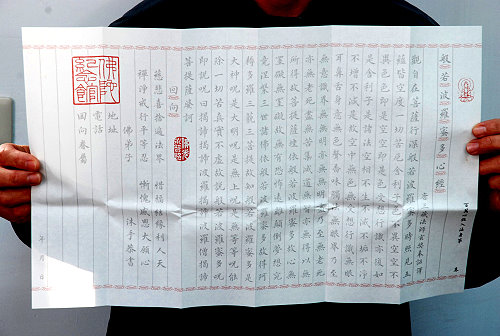 般若波羅蜜多心經
唐三藏法師玄奘奉詔譯
觀自在菩薩行深般若波羅蜜多時照見五
蘊皆空度一切苦厄舍利子色不異空空不
異色色即是空空即是色受想行識亦復如
是舍利子是諸法空相不生不滅不垢不淨
不增不減是故空中無色無受想行識無眼
耳鼻舌身意無色聲香味觸法無眼界乃至
無意識界無無明亦無無明盡乃至無老死
亦無老死盡無苦集滅道無智亦無得以無
所得故菩提薩埵依般若波羅蜜多故心無
罣礙無罣礙故無有恐怖遠離顛倒夢想究
竟涅槃三世諸佛依般若波羅蜜多故得阿
耨多羅三藐三菩提故知般若波羅蜜多是
大神咒是大明咒是無上咒是無等等咒能
除一切苦真實不虛故說般若波羅蜜多咒
即說咒曰揭諦揭諦波羅揭諦波羅僧揭諦
菩提薩婆訶
回向
慈悲喜捨遍法界 惜福結緣利人天
禪淨戒行平等忍 慚愧感恩大願心
佛弟子 沐手恭書
地址
電話
回向恭為
佛陀紀念館
年 月 日